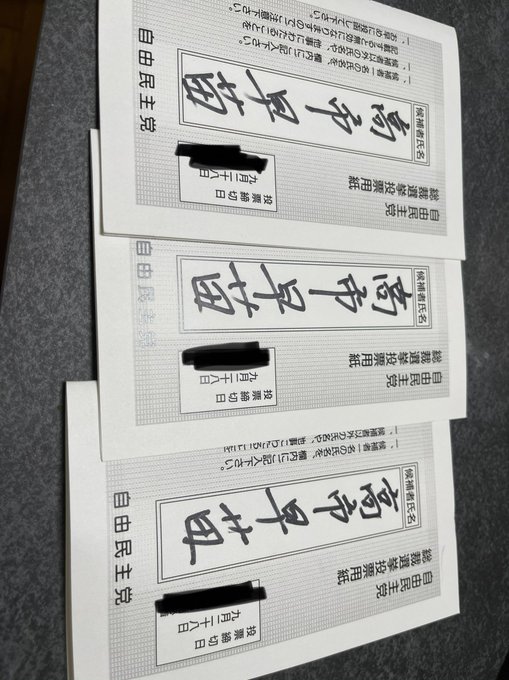 自由民主党
総裁選挙投票用紙
投票締切日
九月二十八日
候補者氏名
高市早苗
一、候補者一名の氏名を、欄内にご記入下さい。
一、候補者以外の氏名や、他事にわたることを
記載すると無効になりますのでご注意下さい。
一、お早めに投函して下さい
自由民主党
自由民主党
総裁選挙投票用紙
投票締切日
九月二十八日
候補者氏名
高市早苗
自由民主党
自由民主党
総裁選挙投票用紙
投票締切日
九月二十八日
候補者氏名
高市早苗
一、候補者一名の氏名を、欄内にご記入下さい。
一、候補者以外の氏名や、他事にわたることを
自由民主党